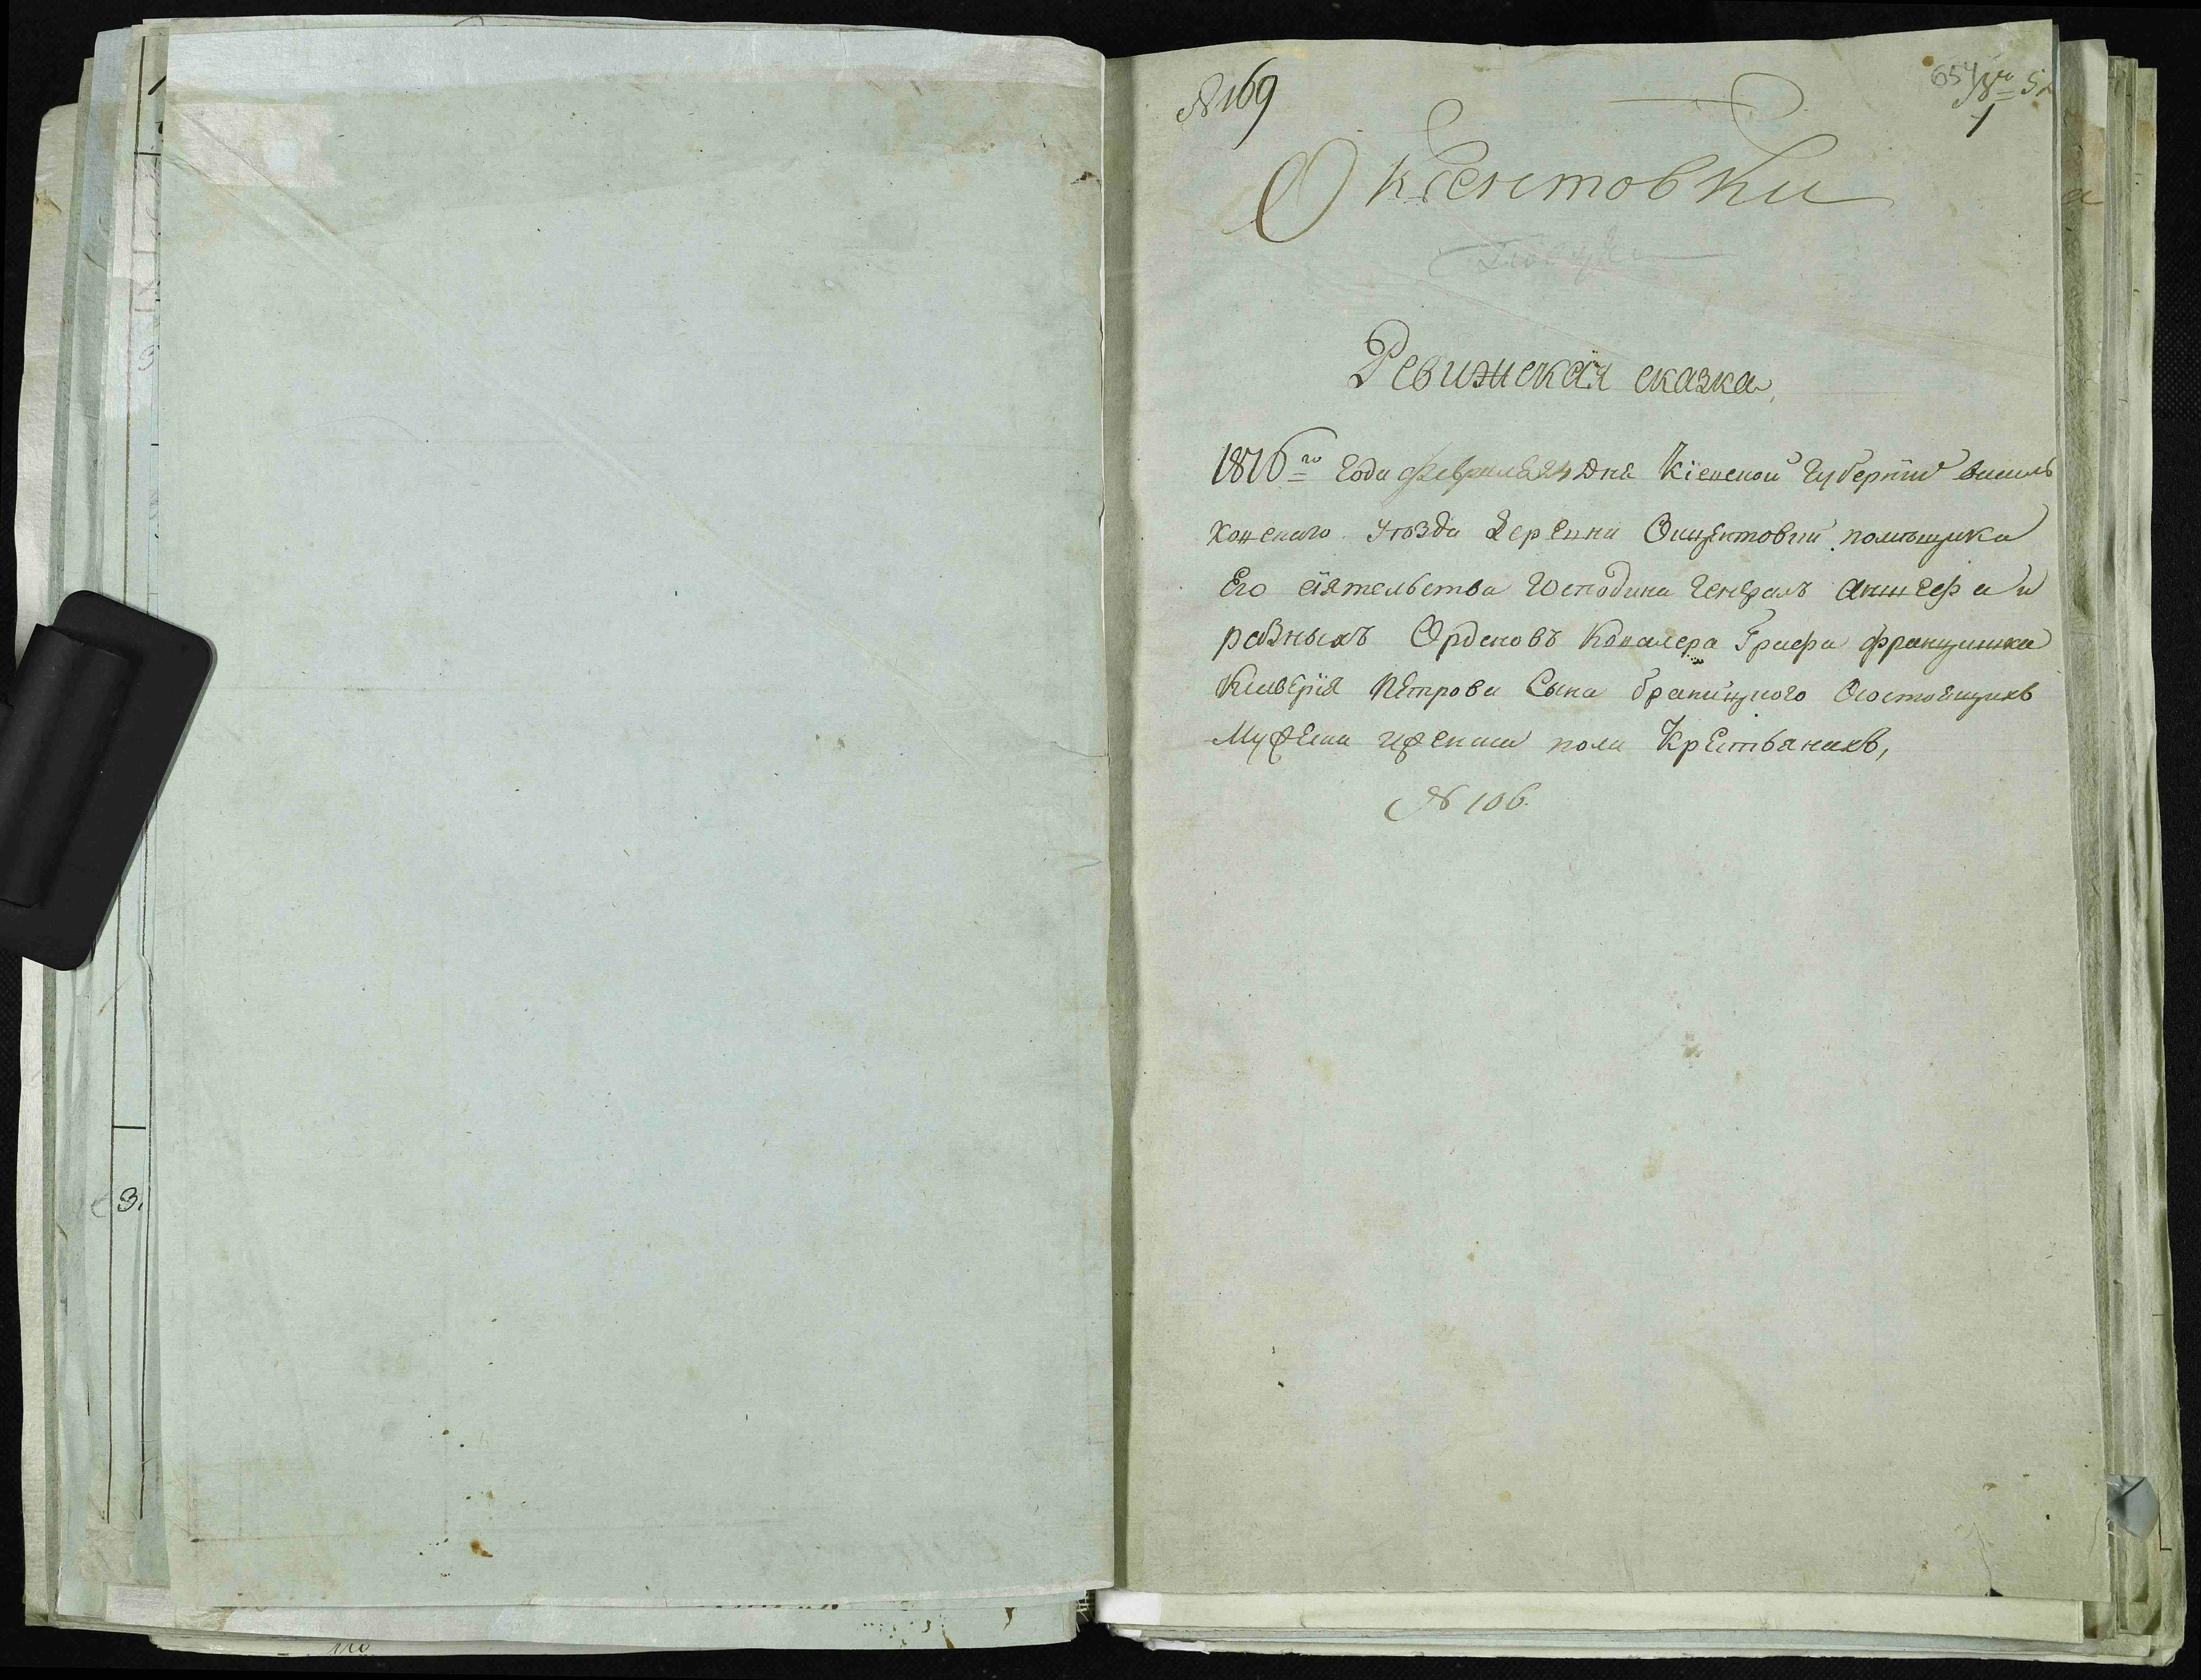 № 169
654
1
Оксентовки
Ревижская сказка,
1816го Года февраля 24 дня Кіевской Губерніи василь
ковскаго уѣзда деревни Оксентовки помѣщика
Его сіятельства Господина Генералъ Аншефа и
разныхъ Орденовъ Кавалера Графа францишка
Ксаверія Петрова Сына браницкого Осостоящихъ
Мужеска иженска пола Крестьянахъ,
№ 106.
3.